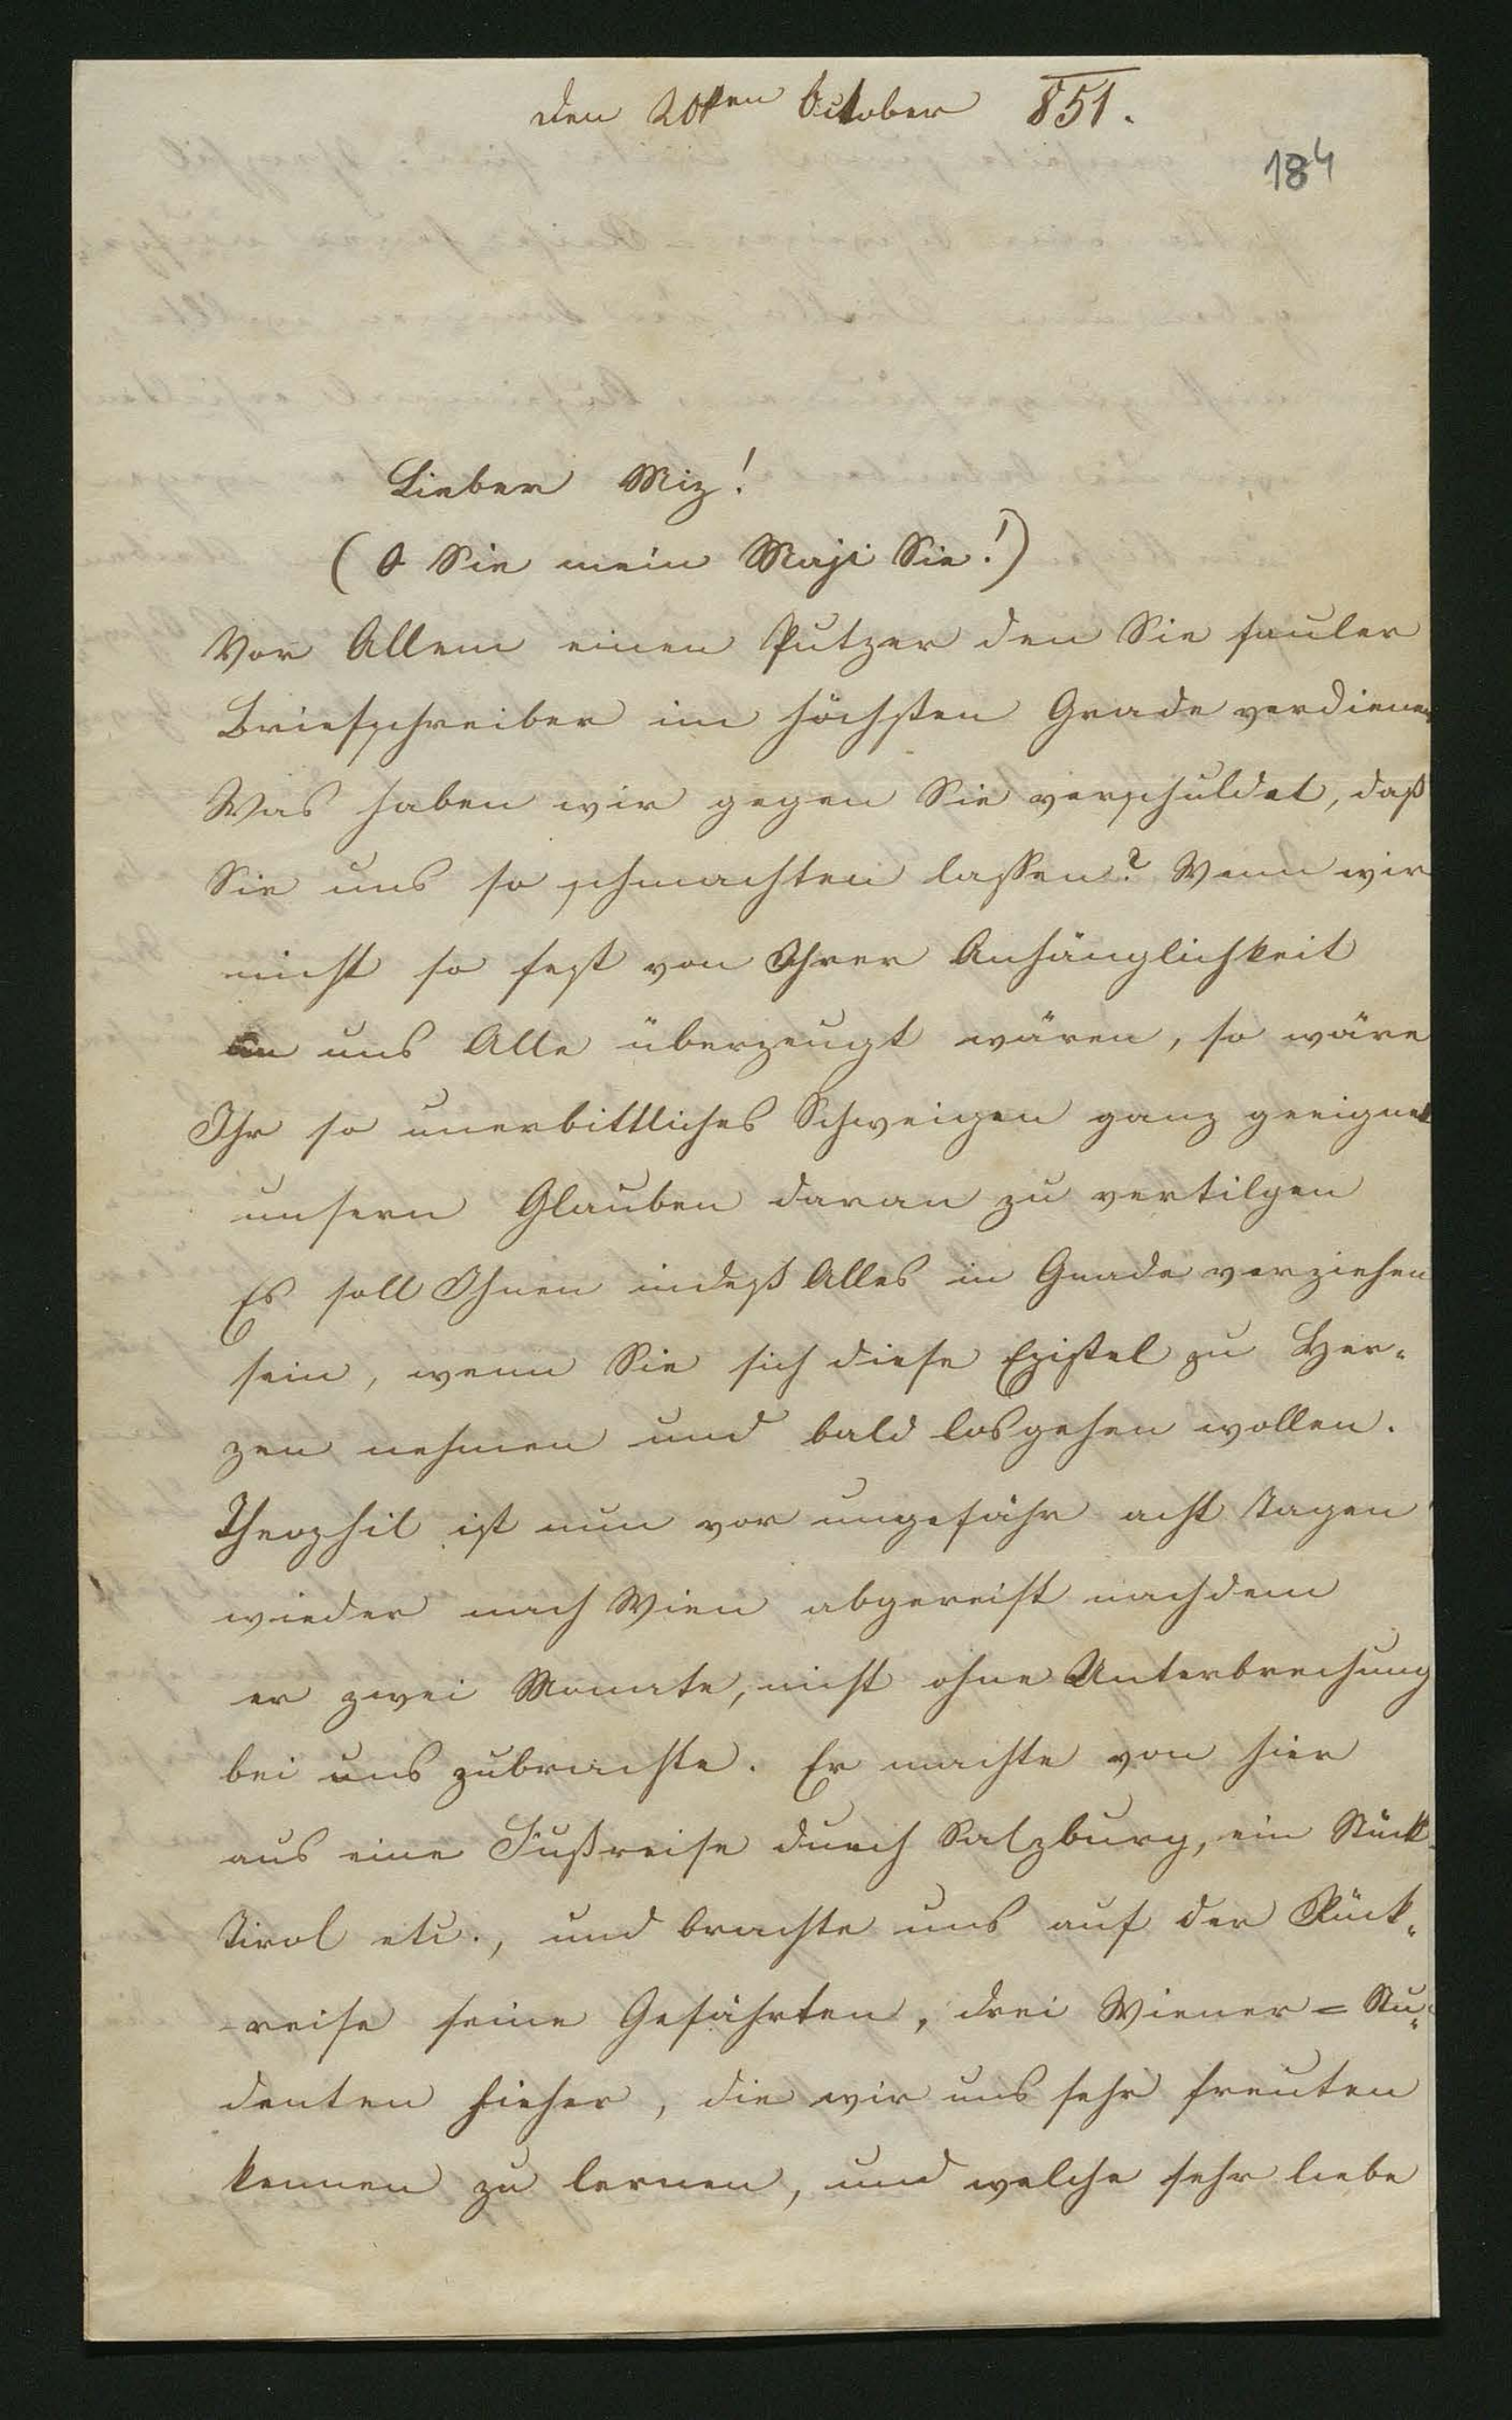 den 20ten October 851.
184
Lieber Miz!
(O Sie mein Maji Sie!)
Vor Allem einen Putzer den Sie fauler
Briefschreiber im höchsten Grade verdienen
Was haben wir gegen Sie verschuldet, daß
Sie uns so schmachten lassen? Wenn wir
nicht so fest von Ihrer Anhänglichkeit
an uns Alle überzeugt wären, so wäre
Ihr so unerbittliches Schweigen ganz geeignet
unsern Glauben daran zu vertilgen
Es soll Ihnen indeß Alles in Gnade verziehen
sein, wenn Sie sich diese Epistel zu Her-
zen nehmen und bald losgehen wollen.
Theophil ist nun vor ungefähr acht Tagen
wieder nach Wien abgereist nachdem
er zwei Monate, nicht ohne Unterbrechung
bei uns zubrachte. Er machte von hier
aus eine Fußreise durch Salzburg, ein Stück
Tirol etc., und brachte uns auf der Rück-
reise seine Gefährten, drei Wiener=Stu-
denten hieher, die wir uns sehr freuten
kennen zu lernen, und welche sehr liebe